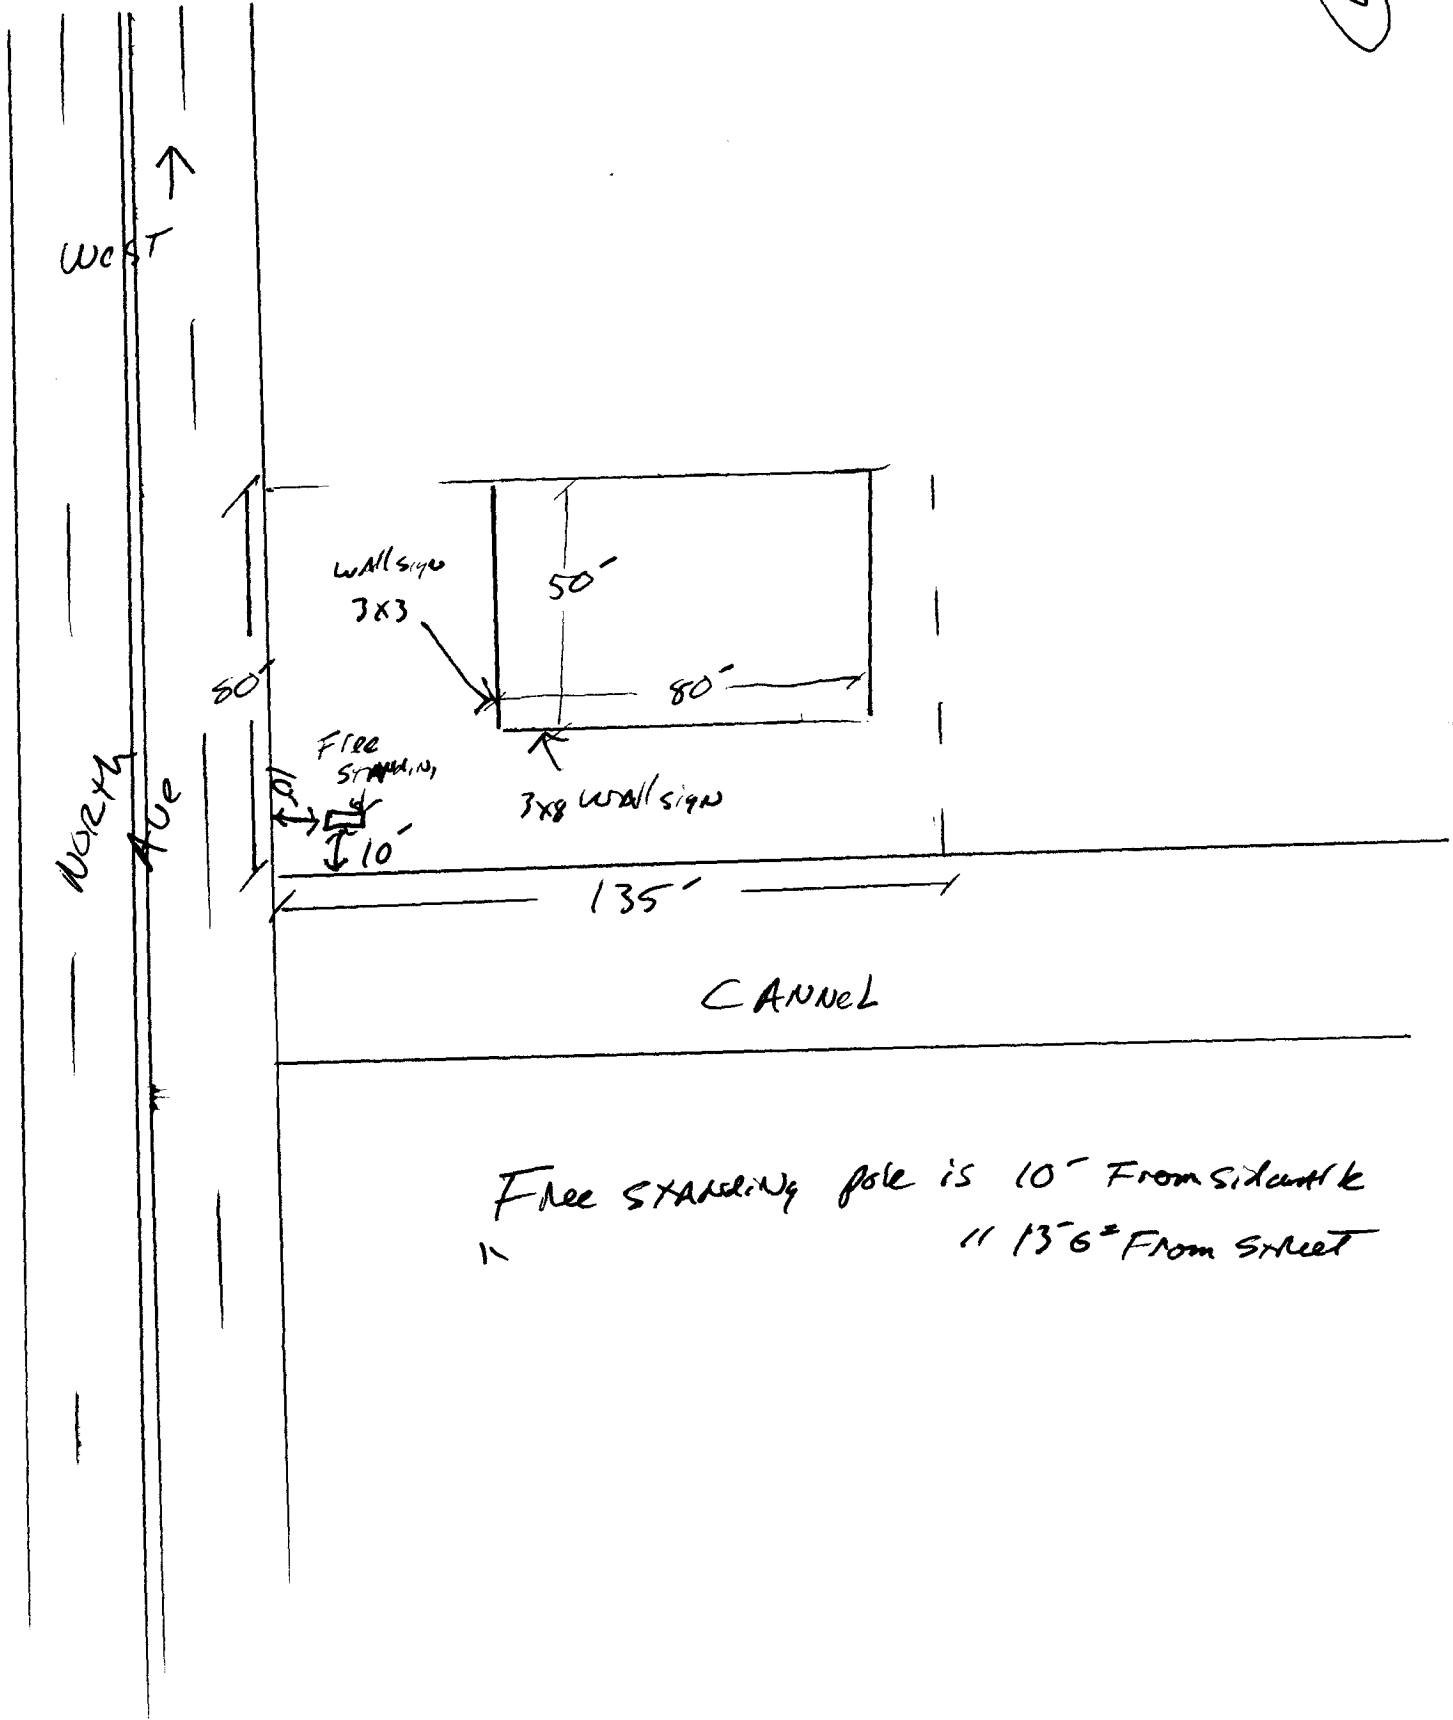 WesT
wall sign
3x3
50'
80'
80'
Free
STANDING
10'
10'
3x8 wall sign
NORTH
AVE
135'
CANNEL
Free STANDING pole is 10' From sidewalk
" " 13'6" From street